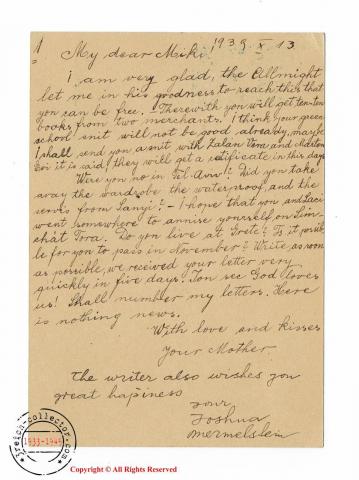 1
My dear Miki! 1939. X. 13
I am very glad, the Allmight
let me in his goodness to reach this that
you can be free. Therewith you will get ten-ten
books from two merchants. I think your green
school suit will not be good already, maybe
I shall send you a suit with Lalan Vera and Marton
for it is said, they will get a certificate in this days.
Were you no in Tel-Aviv? Did you take
away the wardrobe the waterproof, and the
servis from Sanyi? - I hope that you and Laci
went somewhere to annise yourself on Sim-
chát Tora. Do you live at Grete? Is it possib-
le for you to pass in November? Write as soon
as possible, we received your letter very
quickly in five days. You see God loves
us! Shall number my letters. Here
is nothing news.
With love and kisses
Your Mother
The writer also wishes you
great hapiness
Your
Joshua
Mermelstein
3reich-collector.com
1933-1945
Copyright © All Rights Reserved